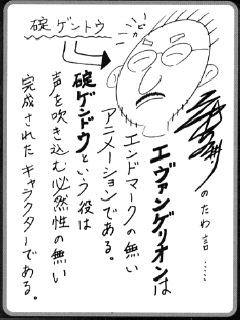 碇ゲンドウ
のたわ言……
エヴァンゲリオンは
エンドマークの無い
アニメーションである。
碇ゲンドウという役は
声を吹き込む必然性の無い
完成されたキャラクターである。